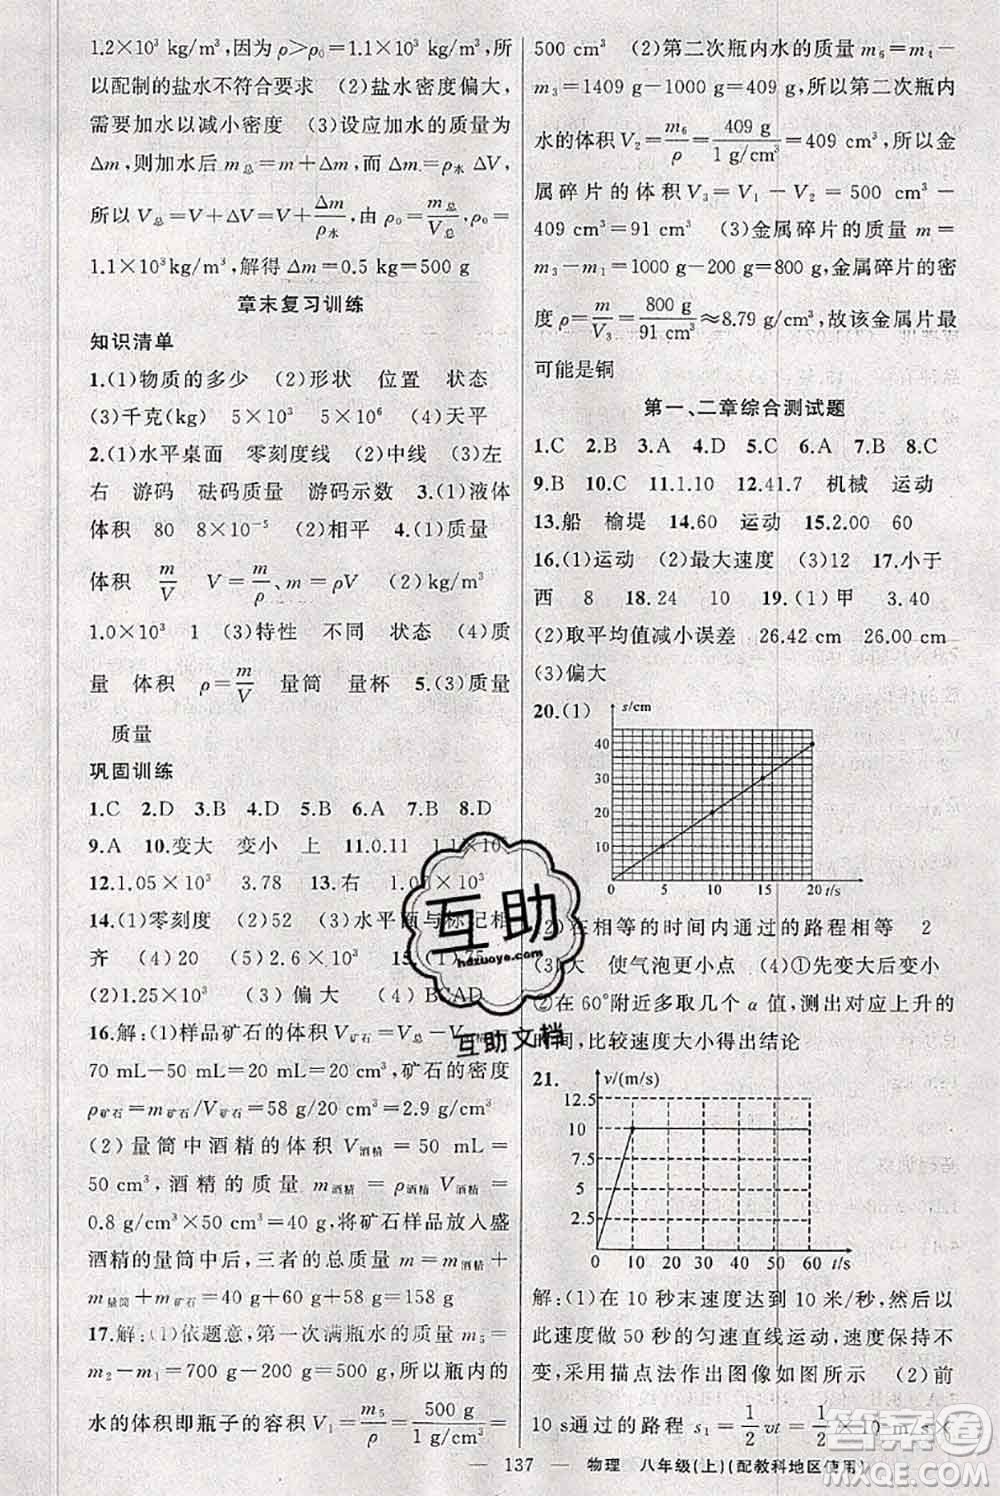 1.2×10³ kg/m³,因为ρ>ρ₀=1.1×10³ kg/m³,所
以配制的盐水不符合要求 (2)盐水密度偏大,
需要加水以减小密度 (3)设应加水的质量为
Δm,则加水后 m总=m+Δm,而 Δm=ρ水 ΔV,
所以 V总=V+ΔV=V+Δm/ρ水,由 ρ₀=m总/V总,ρ₀=
1.1×10³ kg/m³,解得 Δm=0.5 kg=500 g
章末复习训练
知识清单
1.(1)物质的多少 (2)形状 位置 状态
(3)千克(kg) 5×10³ 5×10⁶ (4)天平
2.(1)水平桌面 零刻度线 (2)中线 (3)左
右 游码 砝码质量 游码示数 3.(1)液体
体积 80 8×10⁻⁵ (2)相平 4.(1)质量
体积 m/V V=m/ρ、m=ρV (2)kg/m³
1.0×10³ 1 (3)特性 不同 状态 (4)质
量 体积 ρ=m/V 量筒 量杯 5.(3)质量
质量
巩固训练
1.C 2.D 3.B 4.B 5.B 6.A 7.B 8.D
9.A 10.变大 变小 上 11.0.11 1.1×10³
12.1.05×10³ 3.78 13.右 1.05×10³
14.(1)零刻度 (2)52 (3)水平面与标记相
齐 (4)20 (5)2.6×10³ 15.(1)75
(2)1.25×10³ (3)偏大 (4)BCAD
16.解:(1)样品矿石的体积 V矿石=V总-V酒精=
70 mL-50 mL=20 mL=20 cm³,矿石的密度
ρ矿石=m矿石/V矿石=58 g/20 cm³=2.9 g/cm³
(2)量筒中酒精的体积 V酒精=50 mL=
50 cm³,酒精的质量 m酒精=ρ酒精V酒精=
0.8 g/cm³×50 cm³=40 g,将矿石样品放入盛
酒精的量筒中后,三者的总质量 m=m酒精+
m量筒+m矿石=40 g+60 g+58 g=158 g
17.解:(1)依题意,第一次满瓶水的质量 m₅
=m₂-m₁=700 g-200 g=500 g,所以瓶内的
水的体积即瓶子的容积 V₁=m₅/ρ=500 g/1 g/cm³=
500 cm³ (2)第二次瓶内水的质量 m₆=m₄-
m₃=1409 g-1000 g=409 g,所以第二次瓶内
水的体积 V₂=m₆/ρ=409 g/1 g/cm³=409 cm³ 所以金
属碎片的体积 V₃=V₁-V₂=500 cm³-
409 cm³=91 cm³ (3)金属碎片的质量 m=
m₃-m₁=1000 g-200 g=800 g,金属碎片的密
度 ρ=m/V₃=800 g/91 cm³≈8.79 g/cm³,故该金属片最
可能是铜
第一、二章综合测试题
1.C 2.B 3.A 4.D 5.C 6.A 7.B 8.C
9.B 10.C 11.1.10 12.41.7 机械 运动
13.船 榆堤 14.60 运动 15.2.00 60
16.(1)运动 (2)最大速度 (3)12 17.小于
西 8 18.24 10 19.(1)甲 3.40
(2)取平均值减小误差 26.42 cm 26.00 cm
(3)偏大
20.(1) s/cm
40
30
20
10
0 5 10 15 20 t/s
(2)在相等的时间内通过的路程相等 2
(3)大 使气泡更小点 (4)①先变大后变小
②在 60°附近多取几个 α 值,测出对应上升的
时间,比较速度大小得出结论
21. v/(m/s)
12.5
10
7.5
5
2.5
0 10 20 30 40 50 60 t/s
解:(1)在 10 秒末速度达到 10 米/秒,然后以
此速度做 50 秒的匀速直线运动,速度保持不
变,采用描点法作出图像如图所示 (2)前
10 s通过的路程 s₁=1/2vt=1/2×10 m/s×
互助
hdzuoye.com
互助文档
答案圈
— 137 — 物理 八年级(上)(配教科地区使用)